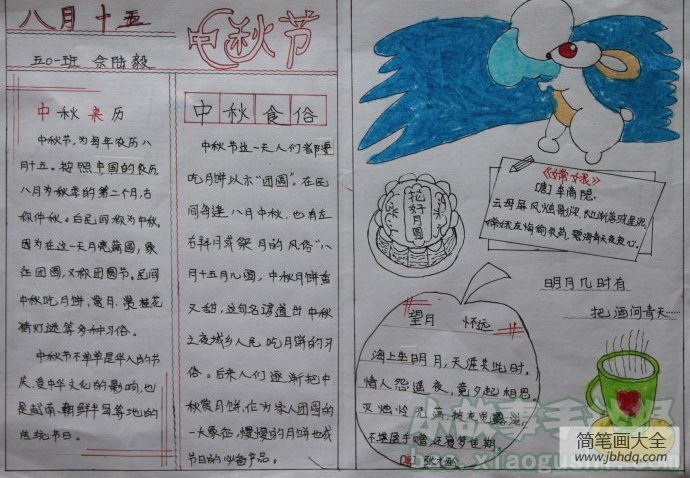 八月十五
中秋节
五〇一班 佘陆毅
中秋来历
中秋节,为每年农历八
月十五。按照中国的农历
八月为秋季的第二个月,古
称仲秋。白民间称为中秋。
因为在这一天月亮满圆,象
征团圆,又称团圆节。民间
中秋吃月饼、赏月、赏桂花
猜灯谜等多种习俗。
中秋节不单单是华人的节
庆,受中华文化的影响,也
是越南、朝鲜半岛等地的
传统节日。
中秋食俗
中秋节这一天人们都要
吃月饼以示“团圆”。在民
间每逢八月中秋,也有左
右拜月或祭月的风俗“八
月十五月儿圆,中秋月饼香
又甜,这句名谚道出中秋
之夜城乡人民吃月饼的习
俗。后来人们逐渐把中
秋赏月饼,作为家人团圆的
一大象征,慢慢的月饼也成
节日的必备产品。
花好月圆
《嫦娥》
[唐]李商隐
云母屏风烛影深,长河渐落晓星沉
嫦娥应悔偷灵药,碧海青天夜夜心。
明月几时有
把酒问青天……
望月 怀远
海上生明月,天涯共此时。
情人怨遥夜,竟夕起相思。
灭烛怜光满,披衣觉露滋。
不堪盈手赠,还寝梦佳期。
[唐]张九龄
小故事手抄报
简笔画大全
www.jbhdq.com